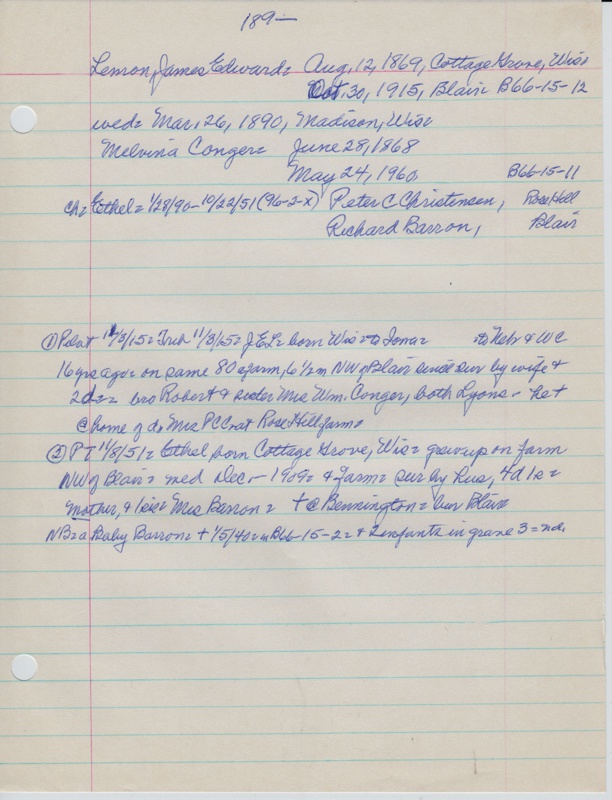 189—
Lemon, James Edward= Aug. 12, 1869, Cottage Grove, Wis=
Oct. 30, 1915, Blair= B66-15-12
wed= Mar. 26, 1890, Madison, Wis=
Melvina Conger= June 28, 1868
May 24, 1960 B66-15-11
ch= Ethel= 1/28/90-10/22/51 (96-2-x) Peter C Christensen, Rose Hill
Richard Barron, Blair
① Pilot 11/3/15= Trib 11/3/15= J.E.L= born Wis= to Iowa= to Nebr & WC
16 yrs ago= on same 80 a farm, 6 1/2 m NW of Blair since= sur by wife +
2 d= = bro Robert & sister Mrs Wm. Conger, both Lyons - he +
@ home of d= Mrs PCC at Rose Hill farm=
② PT 11/8/51= Ethel, born Cottage Grove, Wis= grew up on farm
NW of Blair= wed Dec - 1909= & farm= sur by hus, 4d 1s=
mother, & sis= Mrs Barron= + @ Bennington= bur Blair=
NB= a Baby Barron= + 1/5/40= in B66-15-2= & 2 infants in grave 3= nd.